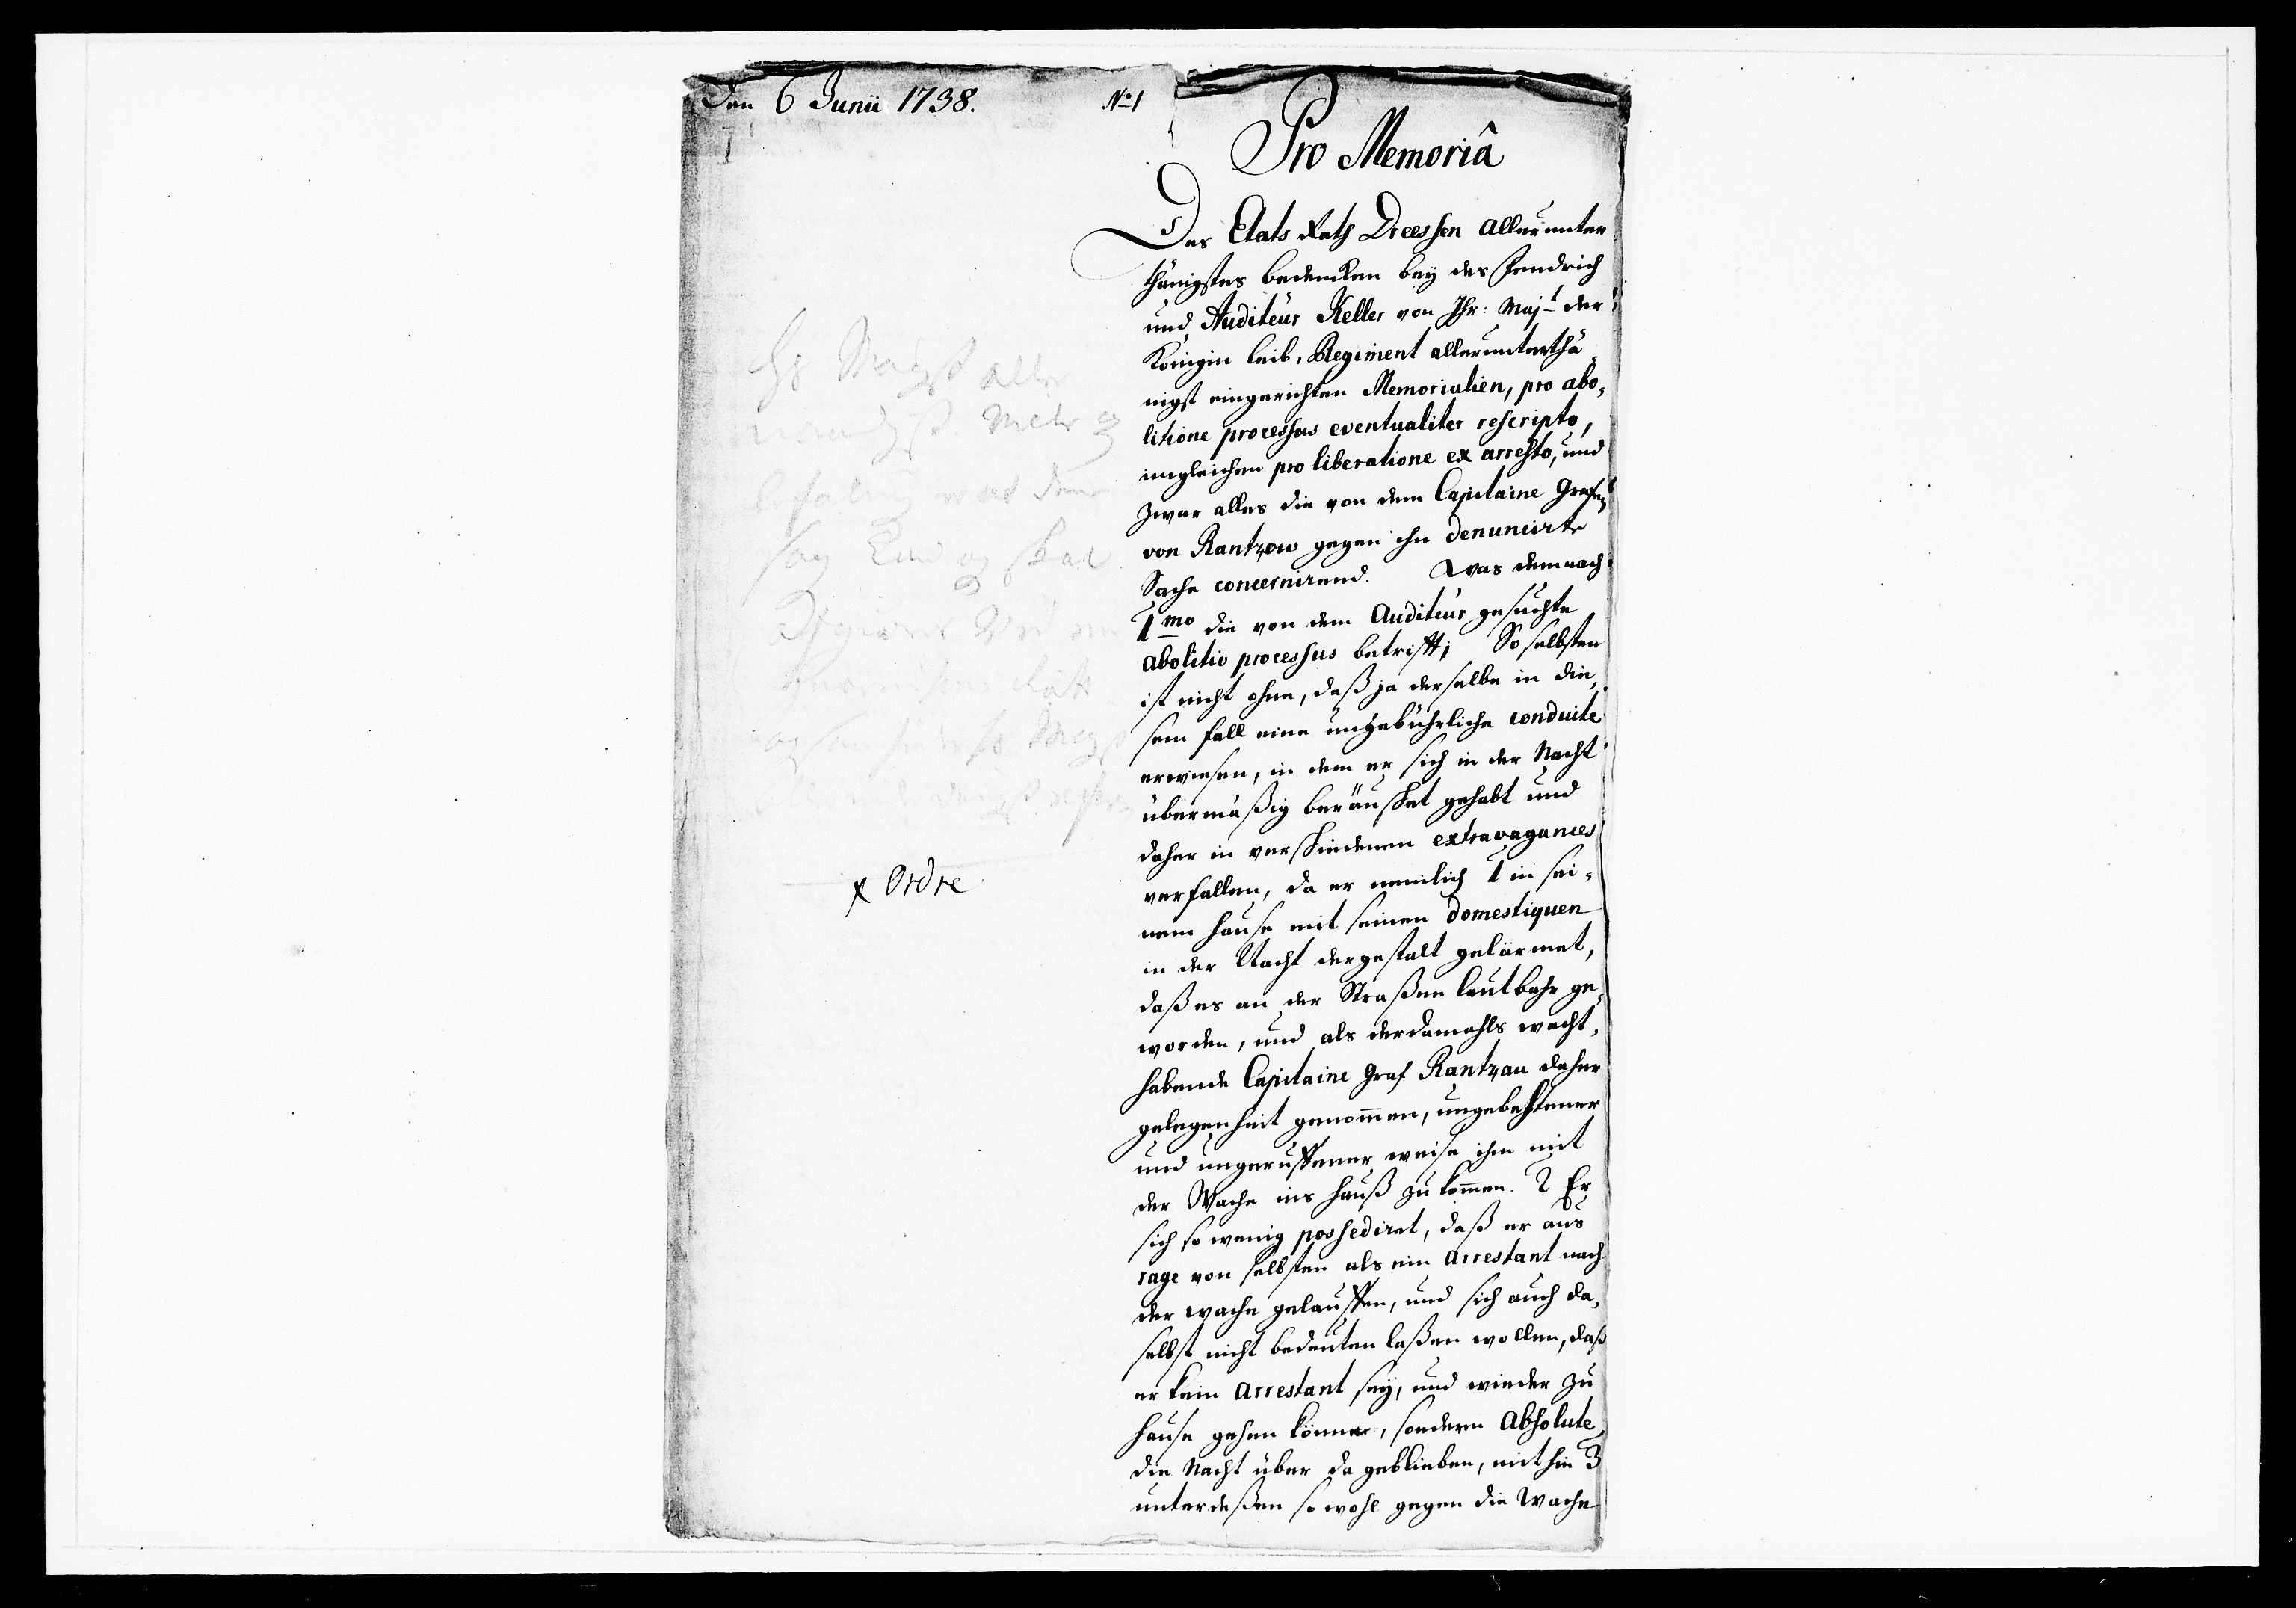 Den 6 Junii 1738.
No 1
Pro Memoriâ
Des Etats Rath Dreessen allerunter
thänigstes bedencken bey des Fendrich
und Auditeur Keller von Ihr: Majt der
Königin leib, Regiment allerunterthä
nigst eingerichten Memorialien, pro abo,
litione processus eventualiter rescripto,
imgleichen pro liberatione ex arresto, und
zwar alles die von dem Capitaine Grafen
von Rantzow gegen ihn denuncirte
Sache concernirend. Was demnach
1mo die von dem Auditeur gesuchte
abolitio processus betrifft; So selbsten
ist nicht ohne, daß ja derselbe in die,
sem fall eine ungebührliche conduite
erwiesen, in dem er sich in der Nacht
übermäßig beräuschet gehabt und
daher in verschiedenen extravagances
verfallen, da er nemlich 1 in sei,
nem hause mit seinen domestiquen
in der Nacht dergestalt gelärmet,
daß es an der Straßen lautbahr ge,
worden, und als der damahls wacht,
habende Capitaine Graf Rantzau daher
gelegenheit genommen, ungebehtener
und ungeruffener weise ihm mit
der Wache ins hauß zu kommen. 2 Er
sich so wenig possediret, daß er aus
rage von selbsten als ein Arrestant nach
der wache gelauffen, und sich auch da,
selbst nicht bedeuten laßen wollen, daß
er kein Arrestant sey, und wieder zu
hause gehen könne, sondern Absolute
die Nacht über da geblieben, mithin 3
unterdeßen so wohl gegen die Wache
Majst aller
befal
og skal
x Ordre